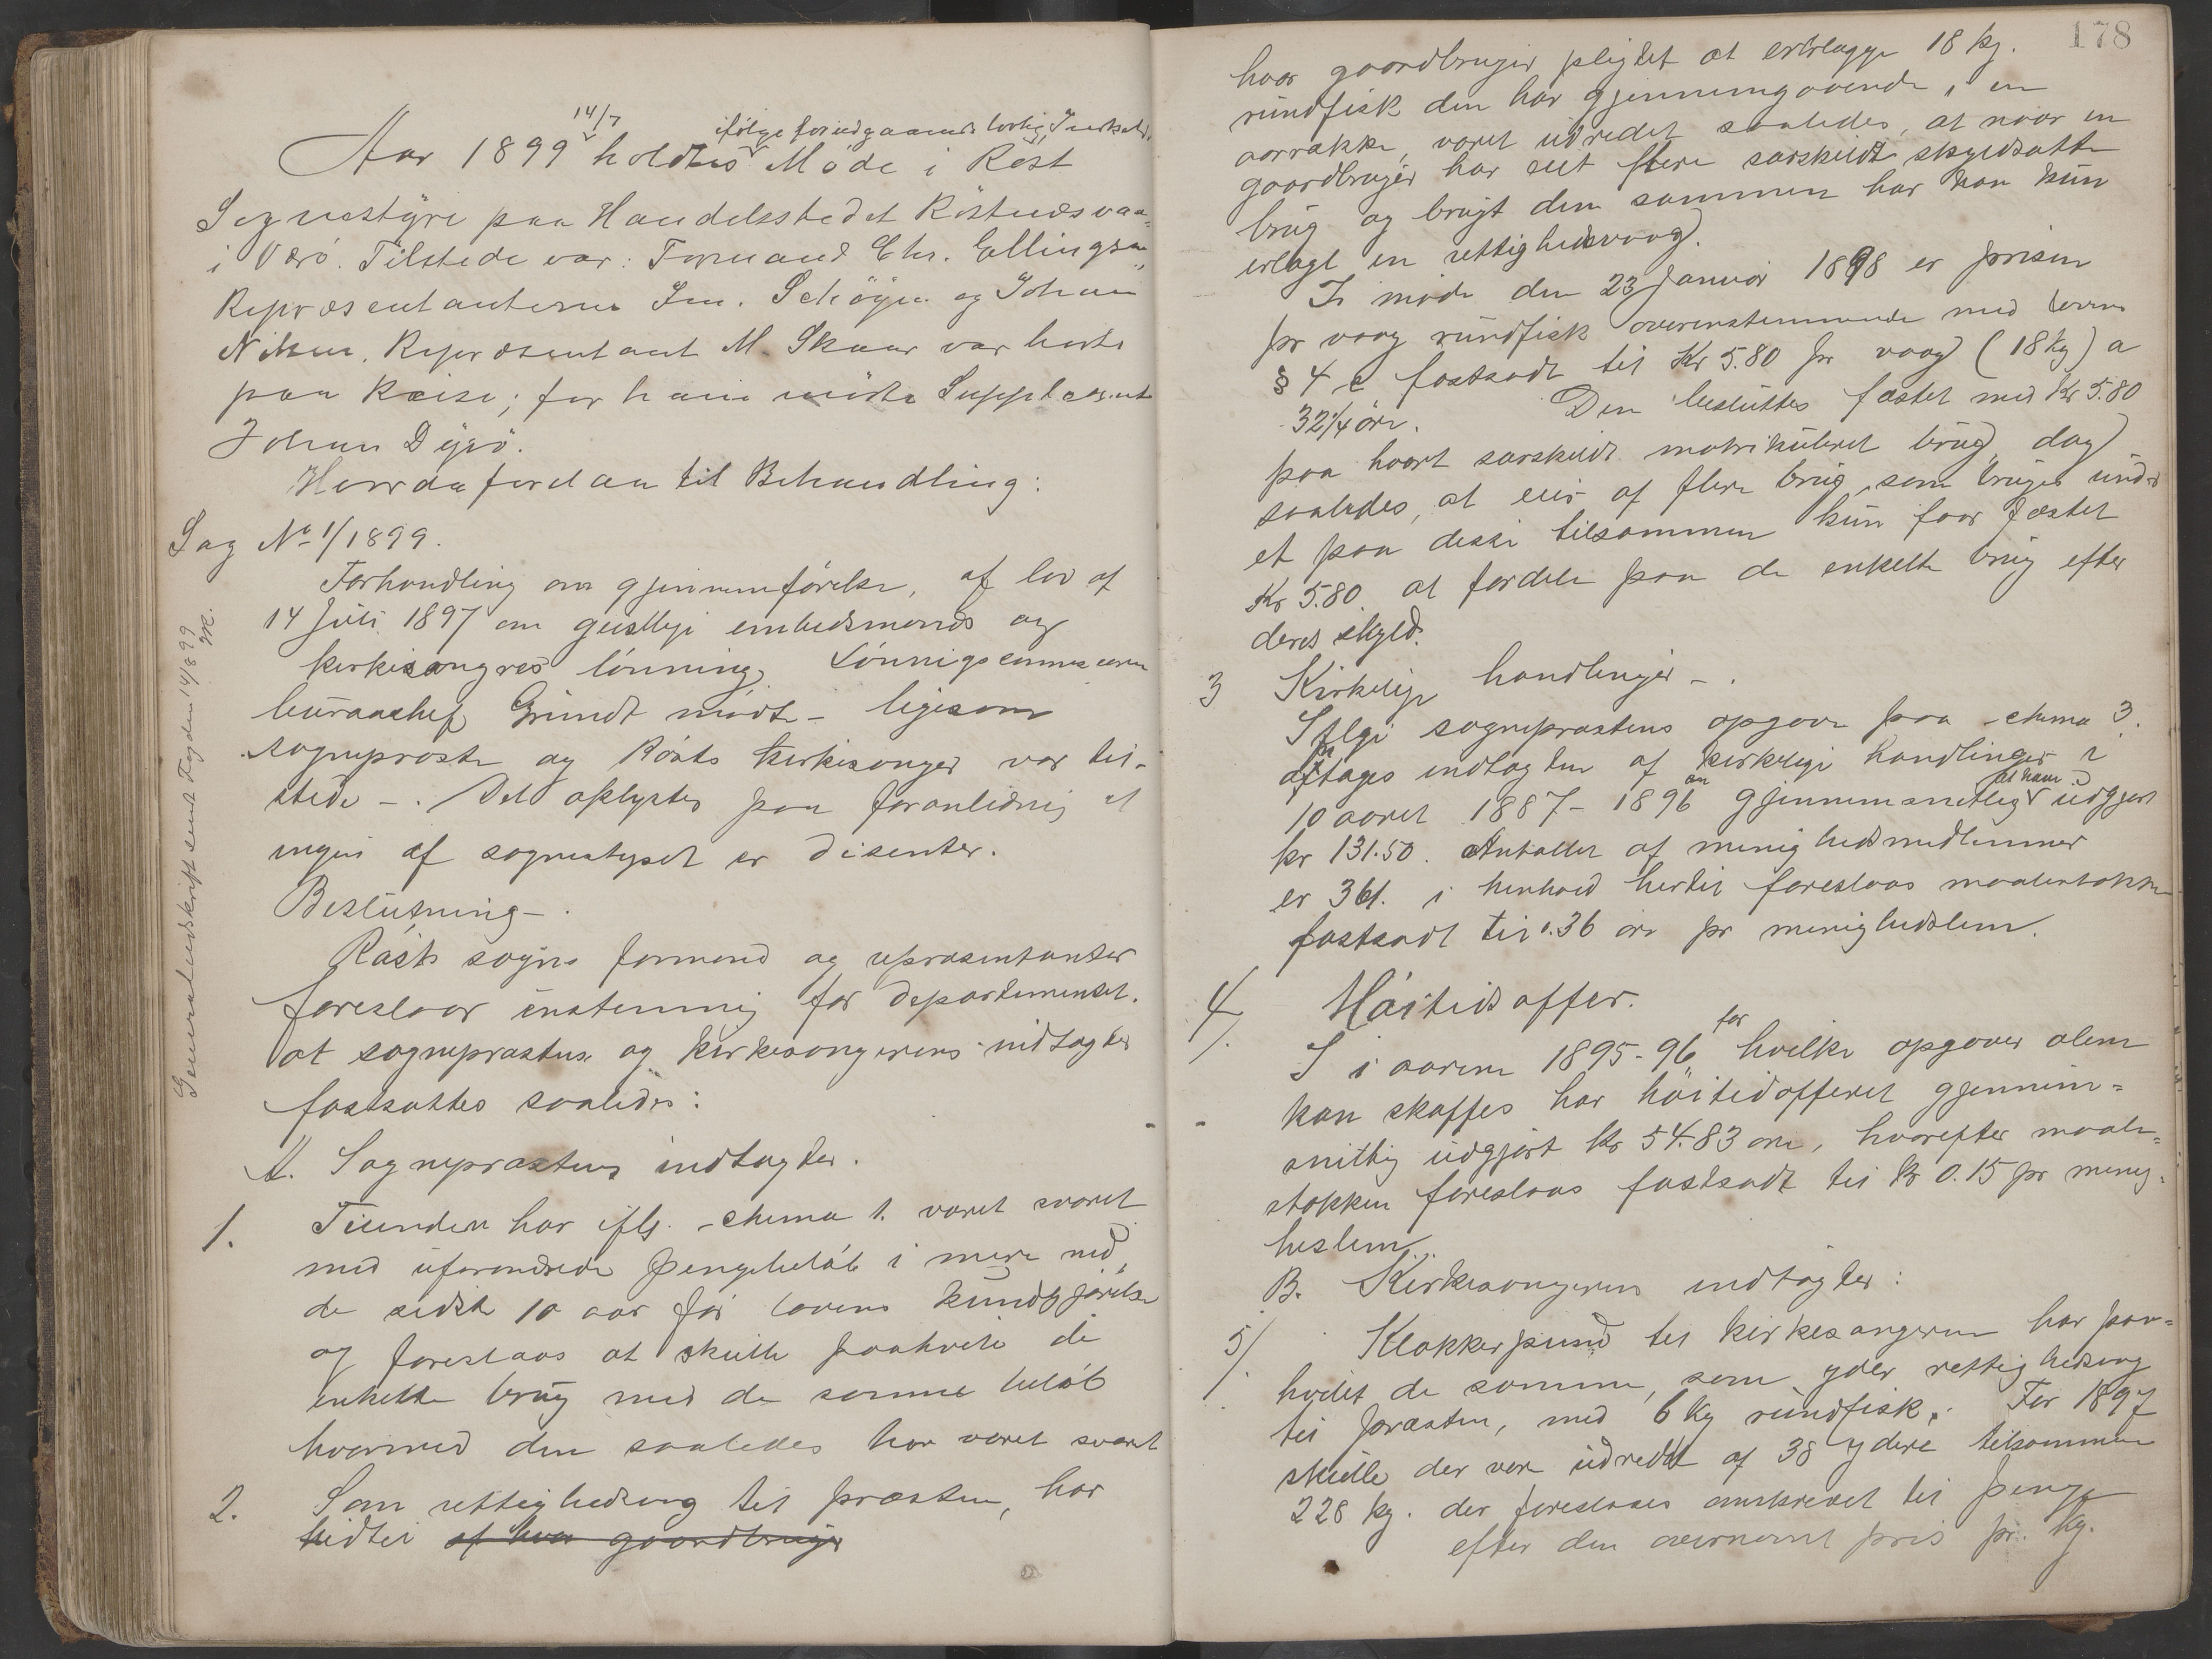 Aar 1899 14/7 holdtes ifölge foriudgaaende lovlig Indkald. Möde i Röst
Sognestyre paa Handelsstedet Röstnesvaa-
i Værö. Tilstede var: Formand Chr. Ellingsen,
Repræsentanterne Im. Schöyen og Johan
Nilsen. Repræsentant M. Skaar var borte
paa Reise; for ham mödte Suppleant
Johan Dyrö.
Hvorda foretaa til Behandling:
Sag No 1/1899.
Forhandling om gjennemförelse, af lov af
14 Juli 1897 om geistlige embedsmænds og
kirkesangeres lönning. Lönnigscommissæren
bureauchef Grundt mödte - ligesom
sogneprosten og Rösts kirkesanger var til-
stede -. Det oplystes paa foranledning at
ingen af sognestyret er disenter.
Beslutning -.
Röst sogns formand og repræsentanter
foreslaar instemmig for departementet.
at sognepræstens og kirkesangerens indtægter
fastsattes saaledes:
A. Sognepræstens indtægter.
1. Tienden har iflg. schema 1. været svaret
med uforandrede pengebeløb i mere end
de sidste 10 aar før lovens kundgjørelse
og foreslaas at skulle paahvile de
enkelte brug med de samme beløb
hvormed den saaledes har været svaret
2. Som rettighedsvog til præsten, har
hidtil af hver gaardbruger
Generaludskrift sendt Fogden 14/8 99
178
hver gaardbruger pligtet at erlægge 18 kg.
rundfisk den har gjennemgaaende, i en
aarrække, været udredet saaledes, at naar en
gaardbruger har eiet flere særskildt skyldsatte
brug og brugt dem sammen har han kun
erlagt en rettighedsvaag.
I möde den 23 Januar 1898 er prisen
pr vaag rundfisk overensstemmende med lovens
§ 4 c fastsadt til Kr 5.80 pr vaag (18 kg) a
32 1/4 öre. Den besluttes fæstet med Kr 5.80
paa hvert særskildt matrikuleret brug, dog
saaledes, at eier af flere brug, som bruges under
et paa disse tilsammen kun faar fæstet
Kr 5.80 at fordele paa de enkelte brug efter
deres skyld.
3 Kirkelige handlinger -.
Ifølge sognepræstens opgave paa schema 3.
aftages indtægten af kirkelige handlinger i
10 aaret 1887-1896 gjennemsnitlig at have udgjort
kr 131.50. Antallet af menighedsmedlemmer
er 361. i henhold hertil foreslaas maalestokken
fastsadt til 0.36 öre pr menighedslem.
4/. Höitidsoffer.
I i aarene 1895-96 for hvilke opgaver alene
kan skaffes har höitidofferet gjennem=
snitlig udgjort Kr 54.83 öre, hvorefter maale=
stokken foreslaas fastsadt til kr 0.15 pr menig-
heslem..
B. Kirkesangerens indtægter:
5/. Klokkerpund til kirkesangeren har paa=
hvilet de samme, som yder rettighedsvog
til præsten, med 6 Kg rundfisk. For 1897
skulle der være udredet af 38 ydere tilsammen
228 kg. der foreslaaes omskrevet til penge
efter den ovennævnt pris pr. kg.